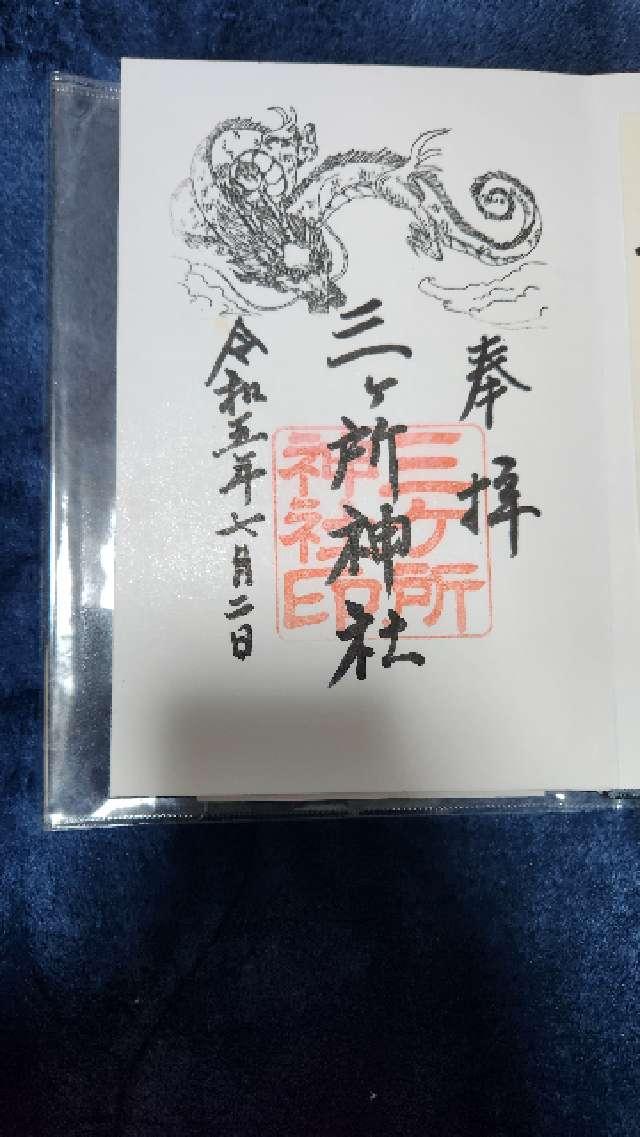 奉拝
三ヶ所神社
三ケ所
神社印
令和五年七月二日